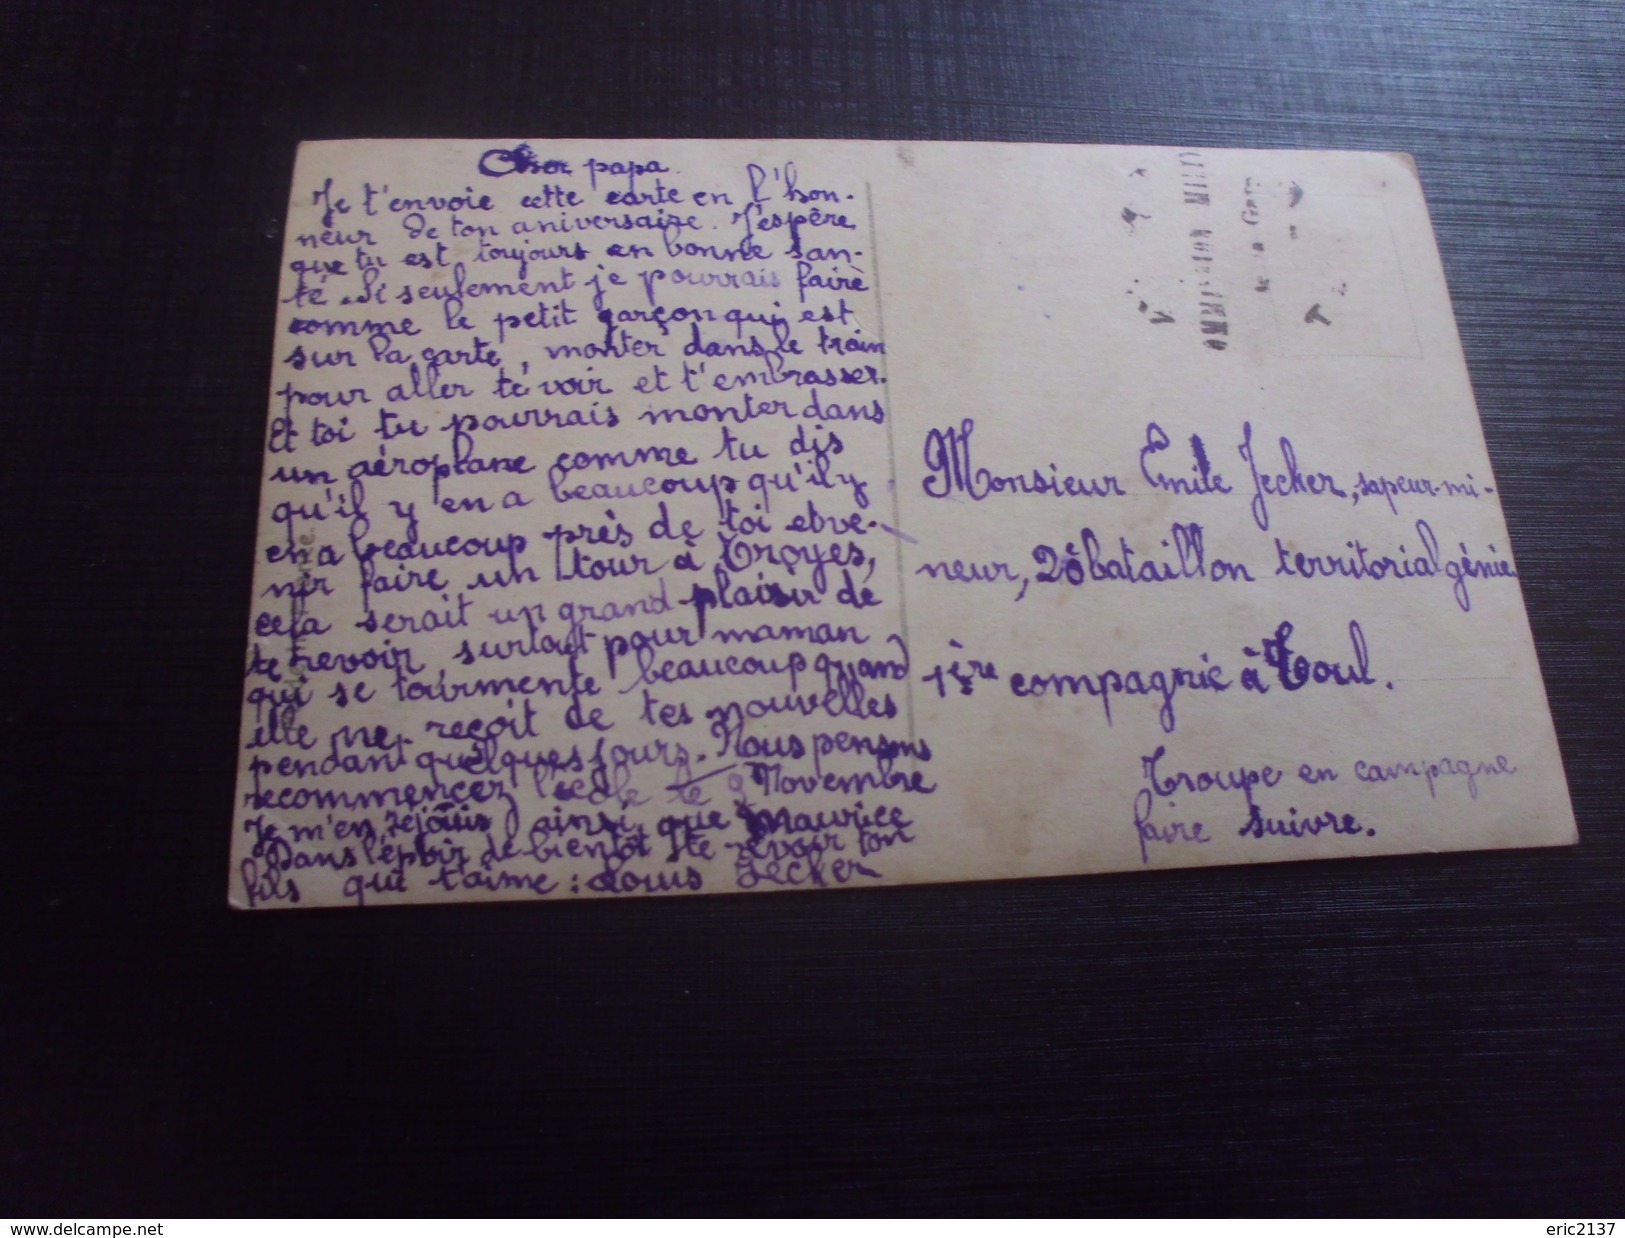 Cher papa.
Je t'envoie cette carte en l'hon-
neur de ton aniversaire. J'espère
que tu est toujours en bonne san-
té. Si seulement je pourrais faire
comme le petit garçon qui est
sur la carte, monter dans le train
pour aller te voir et t'embrasser.
Et toi tu pourrais monter dans
un aéroplane comme tu dis
qu'il y en a beaucoup qu'il y
en a beaucoup près de toi et ve-
nir faire un tour à Troyes,
cela serait un grand plaisir de
te revoir surtout pour maman
qui se tourmente beaucoup quand
elle ne reçoit de tes nouvelles
pendant quelques jours. Nous pensons
recommencer l'école le 9 Novembre
Je m'en rejouis ainsi que Maurice
Dans l'espoir de bientôt te revoir ton
fils qui t'aime : Louis Jecker
Monsieur Emile Jecker, sapeur-mi-
neur, 26 bataillon territorial génie
1ère compagnie à Toul.
Troupe en campagne
faire suivre.
www.delcampe.net
eric2137